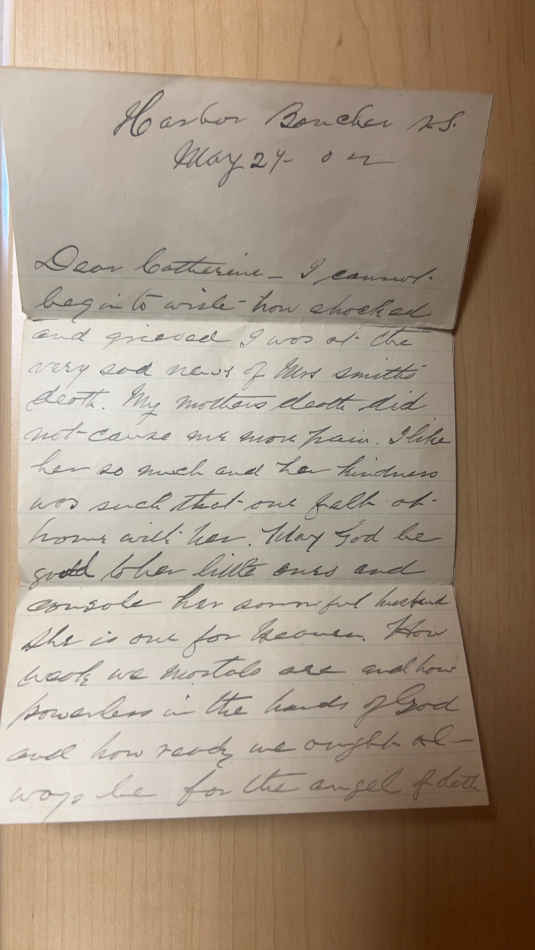 Harbor Boucher N.S.
May 24
Dear Catherine - I cannot
begin to write how shocked
and grieved I was at the
very sad news of Mrs Smith's
death. My mothers death did
not cause me more pain. I like
her so much and her kindness
was such that one felt at
home with her. May God be
good to her little ones and
console her sorrowful husband
She is one for heaven. How
weak we mortals are and how
powerless in the hands of God
and how ready we ought al-
ways be for the angel of deth